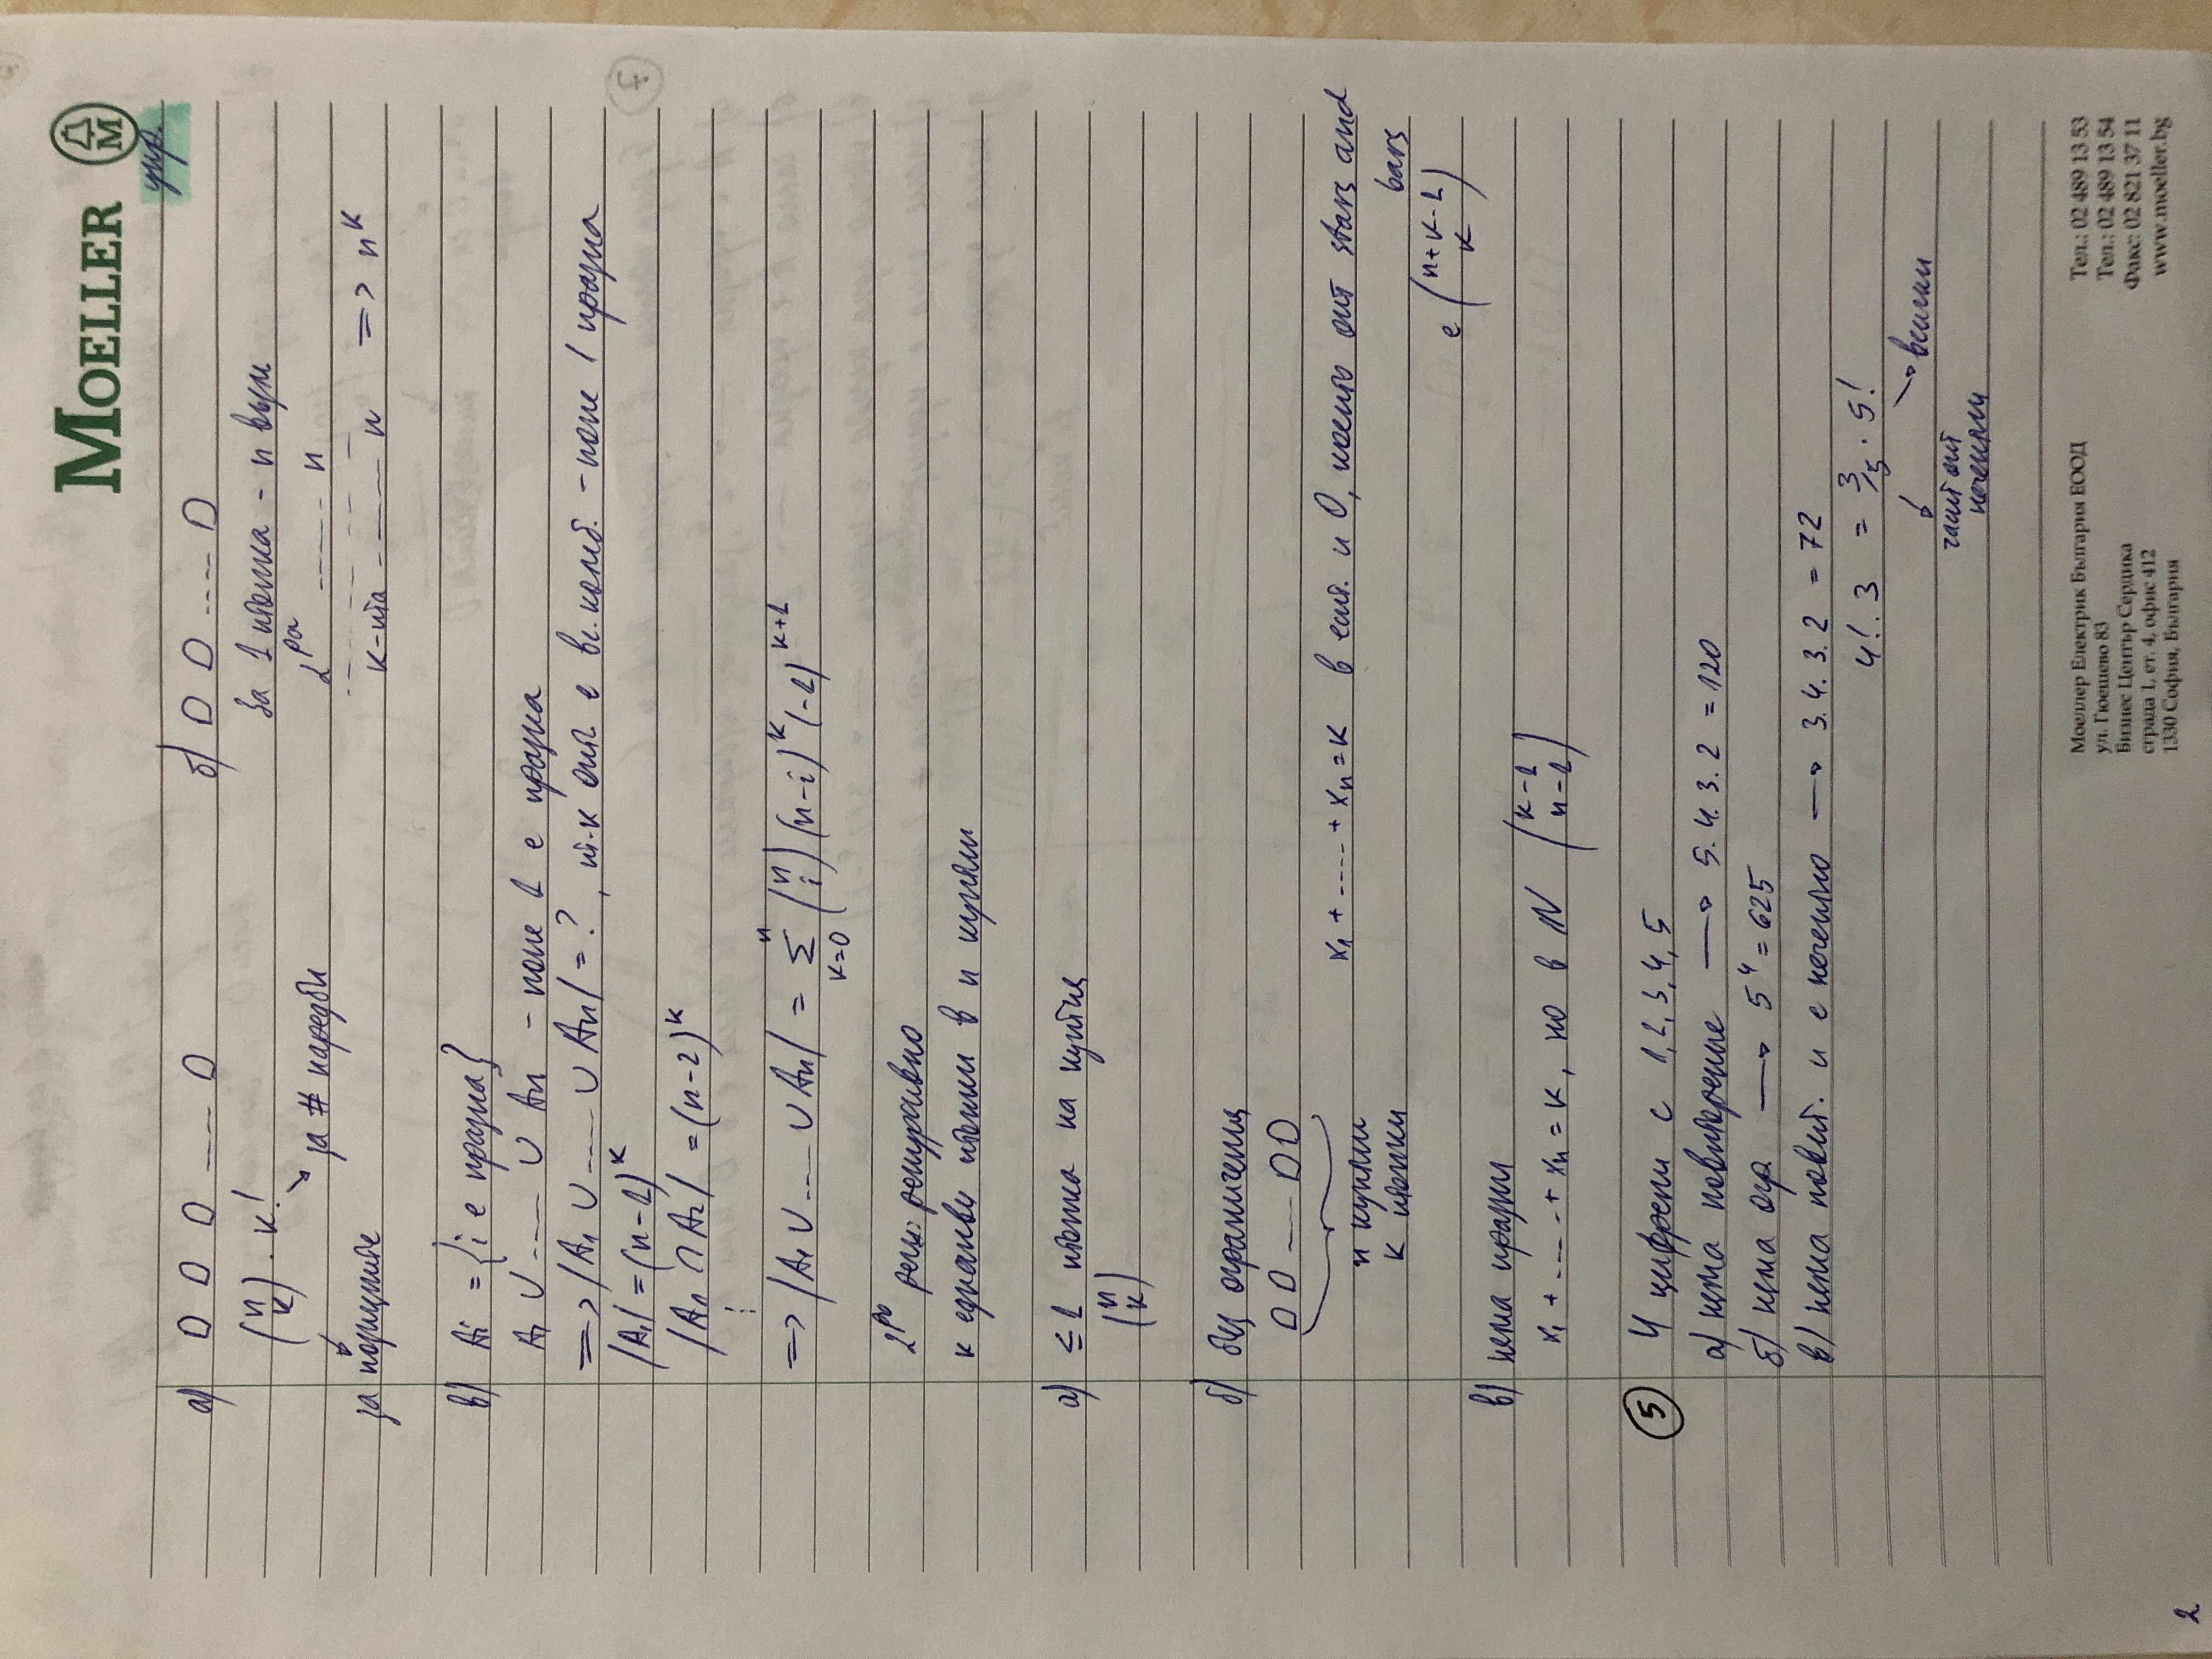 MOELLER
M
упр.
а) D D D ---- D
(n k) . k!
за # наредби
за позициите
б) D D ---- D
за 1 топка - n възм
2ра ----- n
k-та ----- n => n^k
в) Ai = {i е празна}
A1 ∪ ---- ∪ An - поне 1 е празна
=> |A1 ∪ ---- ∪ An| = ? , т.к отг. е вс. комб. - поне 1 празна
|A1| = (n-1)^k
|A1 ∩ A2| = (n-2)^k
⋮
=> |A1 ∪ ---- ∪ An| = Σ_{k=0}^{n} (n i) (n-i)^k (-1)^{k+1}
2ро реш: рекурсивно
k еднакви топки в n кутии
а) ≤ 1 топка на кутия
(n k)
б) без ограничения
D D ---- D D
n кутии
k топки
x1 + ---- + xn = k в ест. и 0, което от stars and
bars
е (n+k-1 k)
в) няма празни
x1 + ---- + xn = k, но в N (k-1 n-1)
5 4 цифрени с 1, 2, 3, 4, 5
а) няма повторение → 5.4.3.2 = 120
б) няма огр. → 5^4 = 625
в) няма повт. и е нечетно → 3.4.3.2 = 72
4! . 3 = 3/5 . 5!
всички
част от
нечетни
Моеллер Електрик България ЕООД
ул. Гюешево 83
Бизнес Център Сердика
сграда 1, ет. 4, офис 412
1330 София, България
Тел.: 02 489 13 53
Тел.: 02 489 13 54
Факс: 02 821 37 11
www.moeller.bg
2